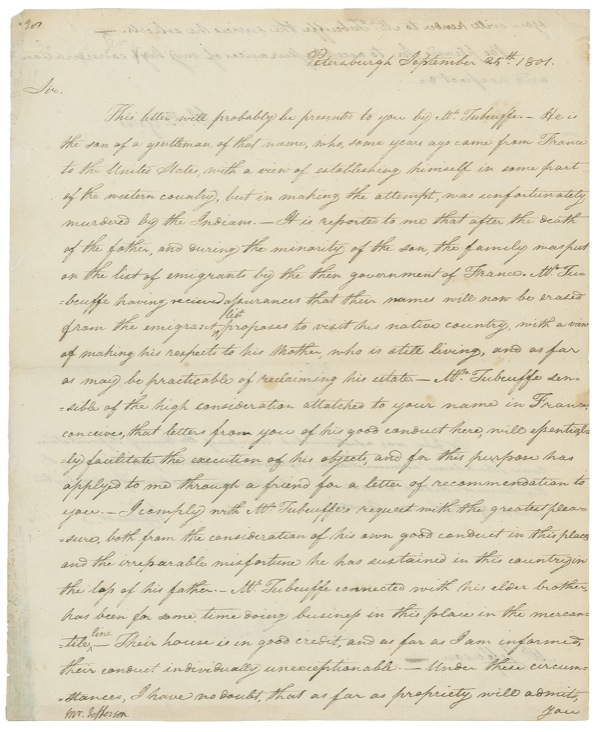 Petersburgh September 25th. 1801.
Sir.
This letter will probably be presented to you by Mr. Tubeuffe – He is
the son of a gentleman of that name, who, some years ago came from France
to the United States, with a view of establishing himself in some part
of the western country, but in making the attempt, was unfortunately
murdered by the Indians. – It is reported to me that after the death
of the father, and during the minority of the son, the family was put
on the list of emigrants by the then government of France. Mr. Tu-
-beuffe having received assurances that their names will now be erased
from the emigrant list proposes to visit his native country, with a view
of making his respects to his Mother, who is still living, and as far
as may be practicable of reclaiming his estate – Mr. Tubeuffe sen-
-sible of the high consideration attached to your name in France,
conceives, that letters from you of his good conduct here, will essential-
-ly facilitate the execution of his objects, and for this purpose has
applyed to me through a friend for a letter of recommendation to
you. – I comply with Mr. Tubeuffe's request with the greatest plea-
-sure, both from the consideration of his own good conduct in this place,
and the irreparable misfortune he has sustained in this country, in
the loss of his father. – Mr. Tubeuffe connected with his elder brother,
has been for some time doing business in this place in the mercan-
-tile line – Their house is in good credit, and as far as I am informed,
their conduct individually unexceptionable. – Under these circum-
-stances, I have no doubt, that as far as propriety will admit,
Mr. Jefferson
you